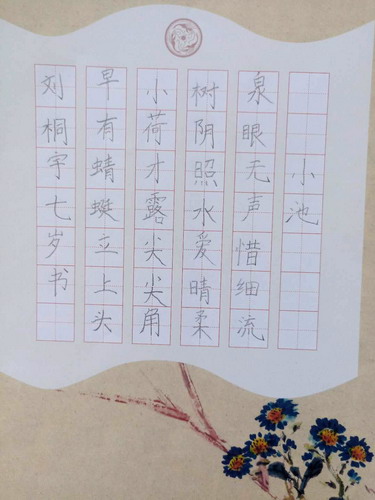 小池
泉眼无声惜细流
树阴照水爱晴柔
小荷才露尖尖角
早有蜻蜓立上头
刘桐宇七岁书